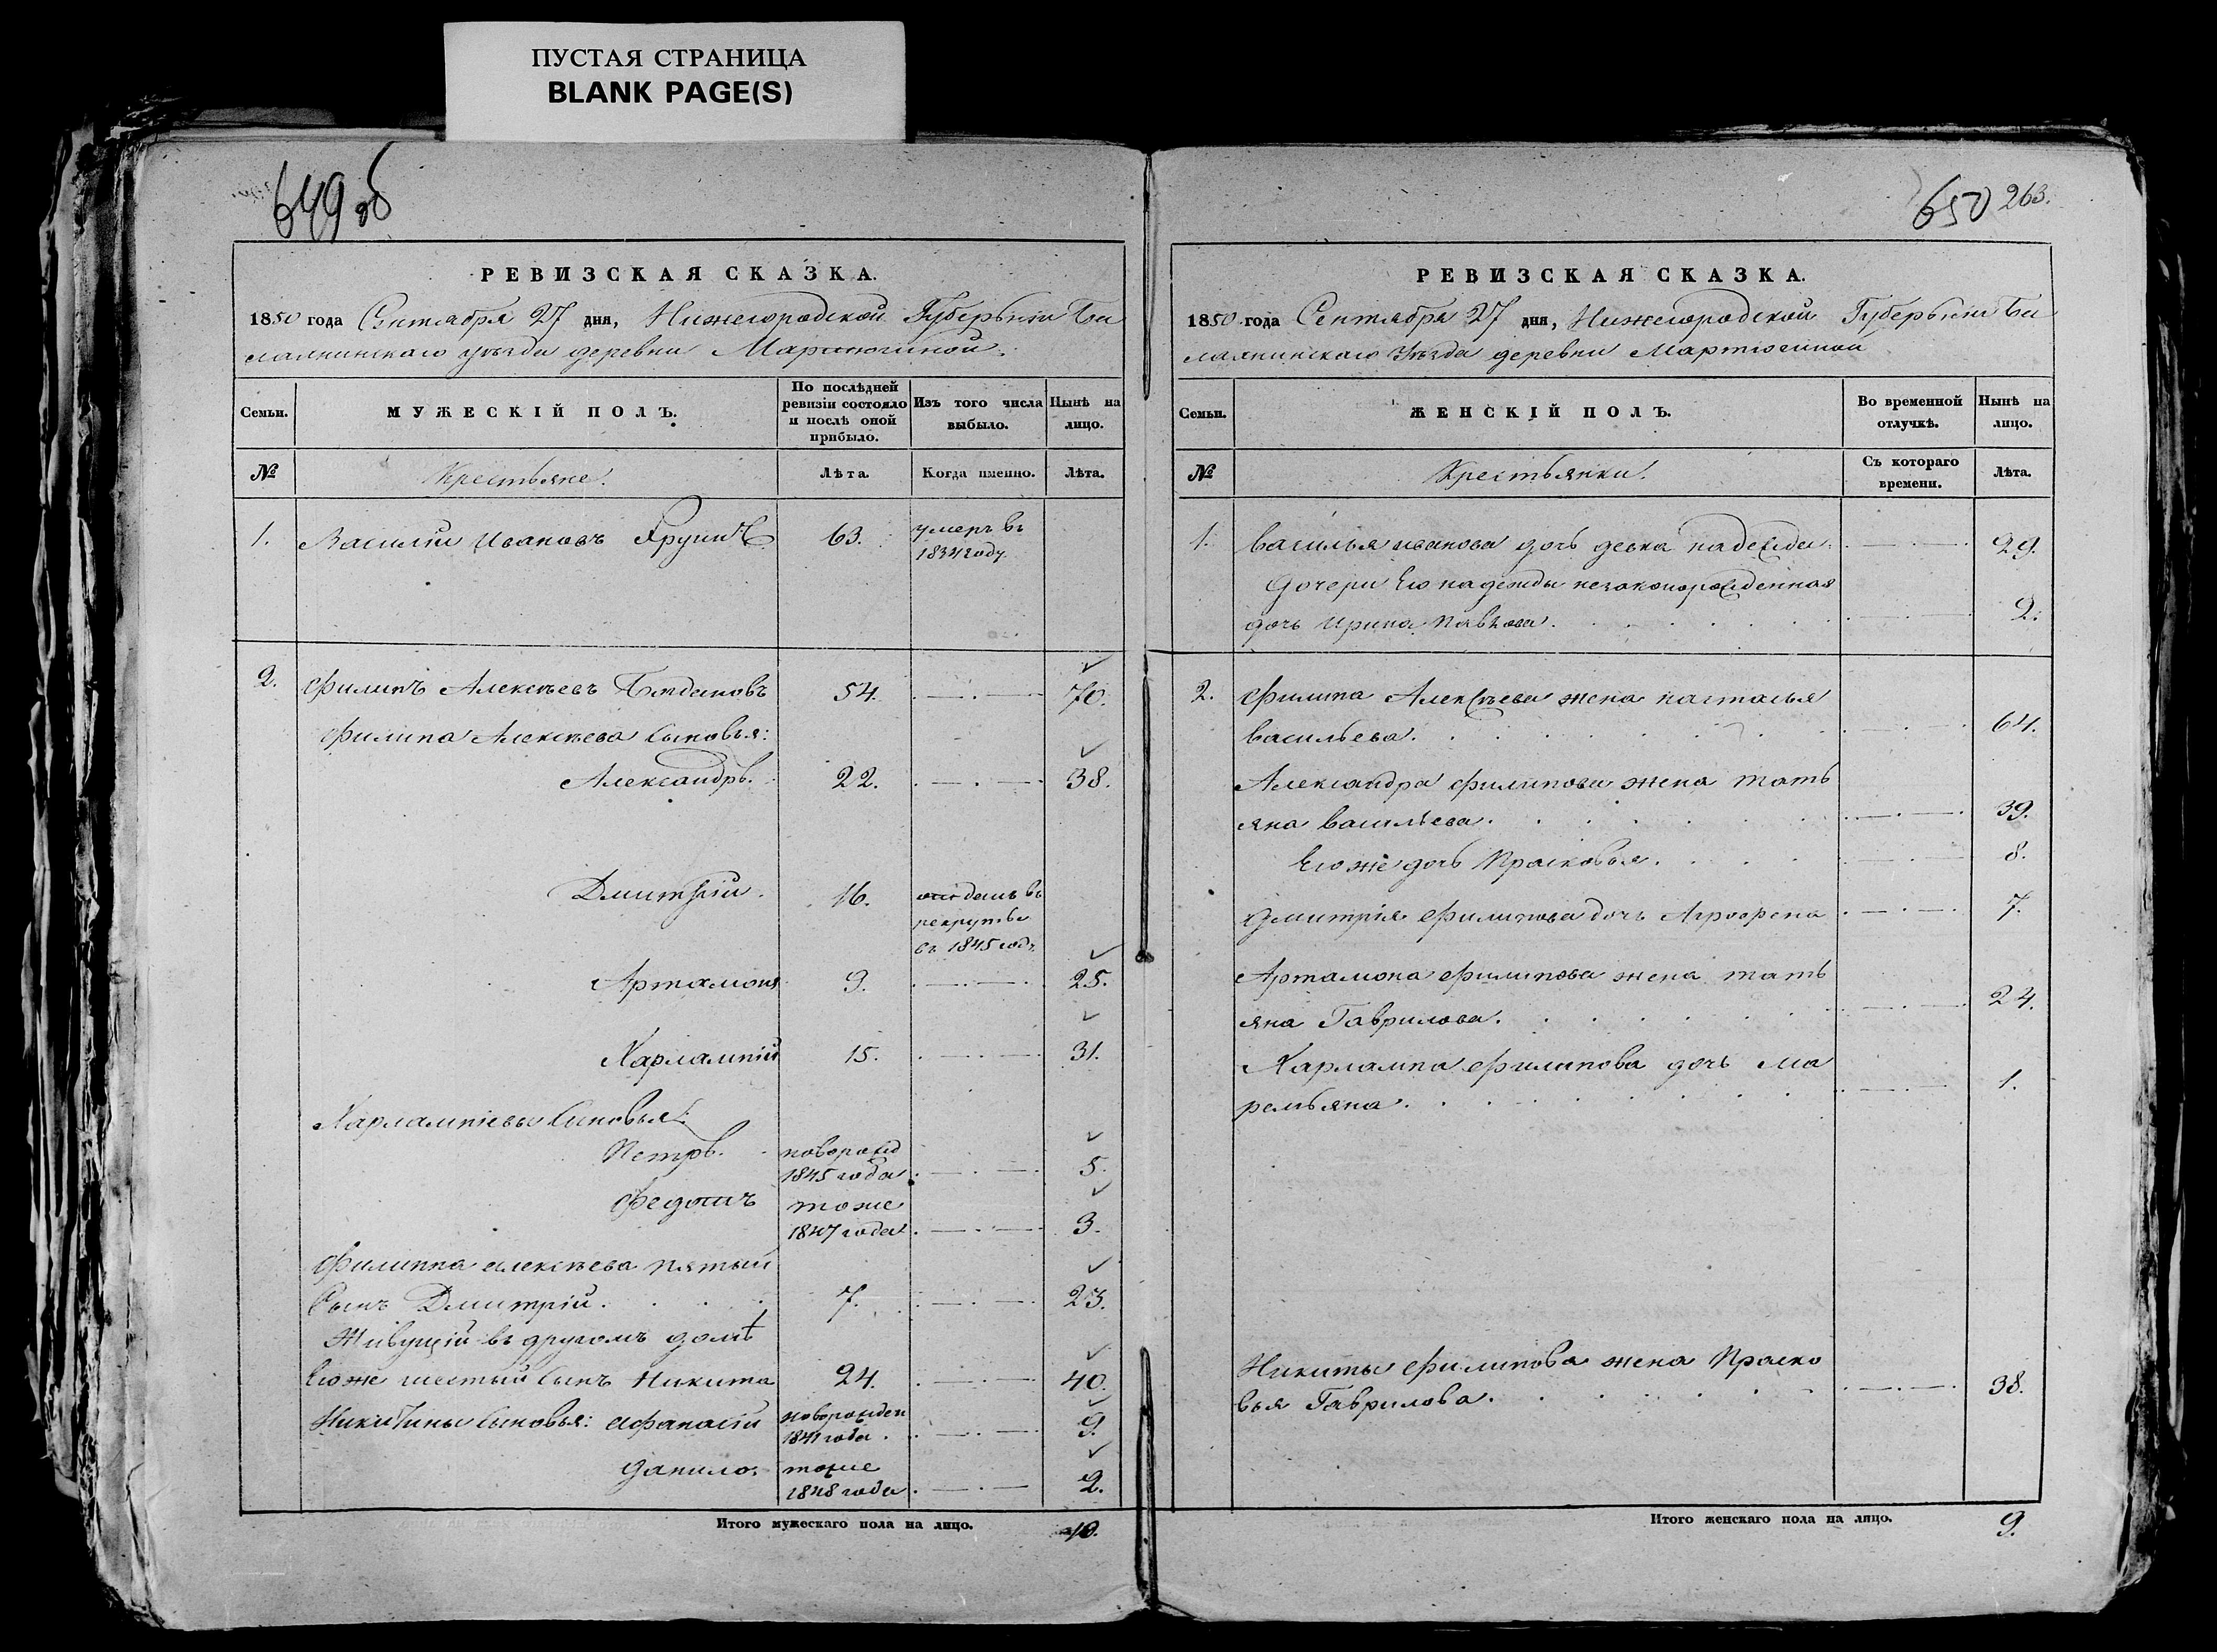 ПУСТАЯ СТРАНИЦА
BLANK PAGE(S)
649 об
РЕВИЗСКАЯ СКАЗКА.
1850 года Сентября 27 дня, Нижегородской Губернии Ба
лахнинскаго уѣзда деревни Мартюгиной.
Семьи.
МУЖЕСКІЙ ПОЛЪ.
По послѣдней ревизіи состояло и послѣ оной прибыло.
Изъ того числа выбыло.
Нынѣ на лицо.
№
Крестьяне.
Лѣта.
Когда именно.
Лѣта.
1. Василій Ивановъ 63. умеръ въ
1834 году
2. Филипъ Алексѣевъ 54. 70.
Филипа Алексѣева сыновья:
Александръ. 22. 38.
Дмитрій. 16. отданъ въ
рекруты
въ 1845 году
Артамонъ 9. 25.
Харлампій 15. 31.
Харлампіевы сыновья:
Петръ. поворожд
1845 года 5.
Федотъ тоже
1847 года 3.
Филиппа Алексѣева пятый
сынъ Дмитрій. 7. 23.
Живущій въ другомъ домѣ
Его же шестый сынъ Никита 24. 40.
Никитины сыновья: Афанасій новорожден
1841 года. 9.
Данило тоже
1848 года 2.
Итого мужескаго пола на лицо. 10.
650 263.
РЕВИЗСКАЯ СКАЗКА.
1850 года Сентября 27 дня, Нижегородской Губерніи Ба
лахнинскаго уѣзда деревни Мартюгиной
Семьи.
ЖЕНСКІЙ ПОЛЪ.
Во временной отлучкѣ.
Нынѣ на лицо.
№
Крестьянки.
Съ котораго времени.
Лѣта.
1. Василья Иванова дочь девка Надежда 29.
Дочери Его Надежды незаконорожденная
дочь Ирина 2.
2. Филипа Алексѣева жена Насталья
Васильева. 64.
Александра Филипова жена Тать
яна Васильева. 39.
Его же дочь Прасковья. 8.
Дмитрія Филипова дочь Агрофена 7.
Артамона Филипова жена Тать
яна Гаврилова. 24.
Харлампа Филипова дочь Ма
ремьяна. 1.
Никиты Филипова жена Праско
вья Гаврилова. 38.
Итого женскаго пола на лицо. 9.